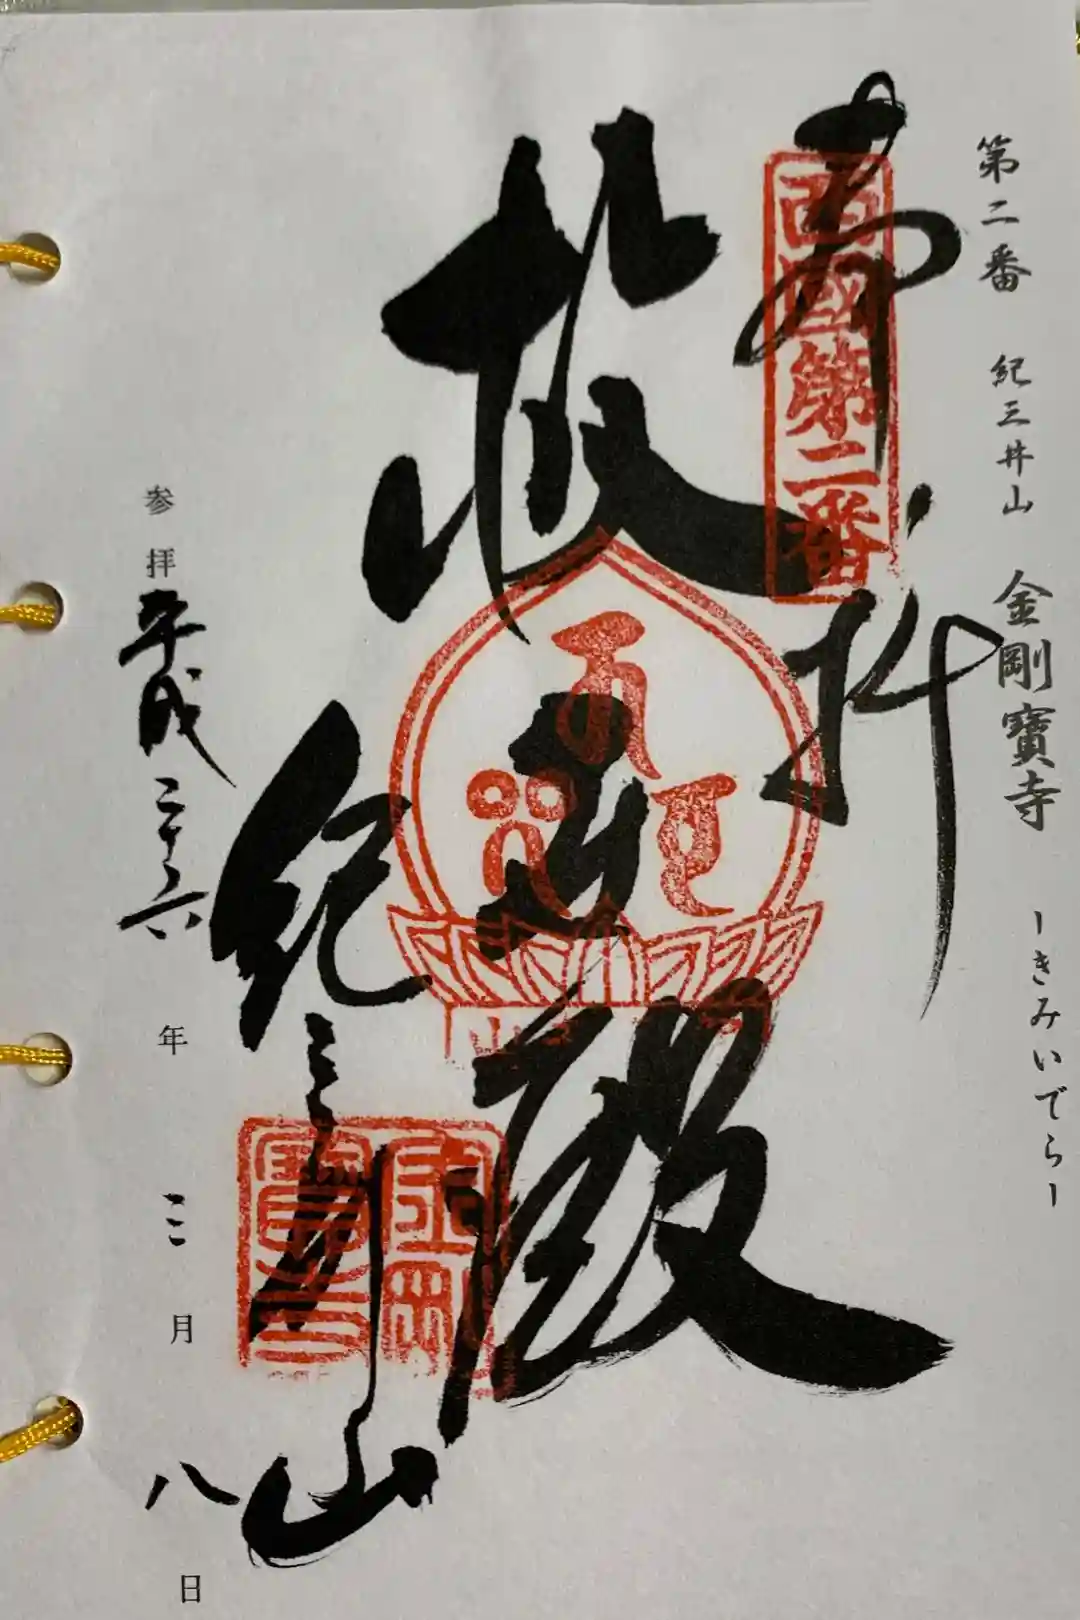 第二番 紀三井山 金剛寶寺 ーきみいでらー
奉拝
西國第二番
救世殿
紀三井山
参拝 平成二十六年 三月 八日